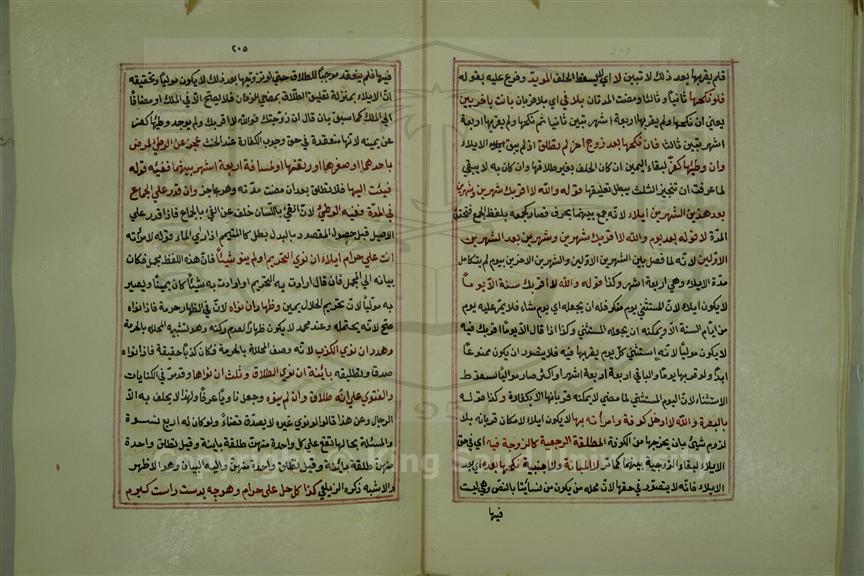 فلم يقربها بعد ذلك لا تبين لا اي لا يسقط الحلف المؤبد وفرع عليه بقوله
فلو نكحها ثانيا وثالثا ومضت المدتان بلا فيء بلا قربان بانت باخريين
يعني ان نكحها ولم يقربها اربعة اشهر تبين ثانيا ثم نكحها ولم يقربها اربعة
اشهر تبين ثالثا فان نكحها بعد زوج اخر لم تطلق اذ لم يبق الايلاء
وان وطئها كفر لبقاء اليمين ان كان الحلف بغير طلاقها وان كان به لا يبقى
لما عرفت ان تنجيز الثلث يبطل تعليقها قوله والله لا اقربك شهرين وشهرين
بعد هذين الشهرين ايلاء لانه جمع بينهما بحرف فصار كجمعه بلفظ الجمع فتحقق
المدة لا قوله بعد يوم والله لا اقربك شهرين وشهرين بعد الشهرين
الاولين لانه لما فصل بين الشهرين الاولين والشهرين الاخرين بيوم لم يتكامل
مدة الايلاء وهي اربعة اشهر وكذا قوله والله لا اقربك سنة الا يوما
لا يكون ايلاء لان المستثنى يوم منكر فله ان يجعله اي يوم شاء فلا يمر عليه يوم
من ايام السنة الا ويمكنه ان يجعله المستثنى وكذا اذا قال الا يوما اقربك فيه
لا يكون موليا لانه استثنى كل يوم يقربها فيه فلا يتصور ان يكون ممنوعا
ابدا ولو قربها يوما والباقي اربعة اشهر او اكثر صار موليا لسقوط
الاستثناء لان اليوم المستثنى لما مضى لا يمكنه قربانها الا بكفارة وكذا قوله
بالبصرة والله لا ادخل كوفة وامرأته بها لا يكون ايلاء لامكان قربانه بلا
لزوم شيئ بان يخرجها من الكوفة المطلقة الرجعية كالزوجة فيه اي في حق
الايلاء لبقاء الزوجية بينهما كما مر لا المبانة ولا اجنبية نكحها بعده اي بعد
الايلاء فانه لا يتصور في حقها لان محله من يكون من نسائنا بالنص وهي ليست
فيها
٢٠٥
فيها فلم ينعقد موجبا للطلاق حتى لو تزوجها بعد ذلك لا يكون موليا وتحقيقه
ان الايلاء بمنزلة تعليق الطلاق بمضي الزمان فلا يصح الا في الملك او مضافا
الى الملك كما سبق بان قال ان تزوجتك فوالله لا اقربك ولو وطئها كفر
عن يمينه لانها منعقدة في حق وجوب الكفارة عند الحنث عجز عن الوطئ لمرض
باحدهما او صغرها او رتقها او لمسافة اربعة اشهر بينهما ففيئه قوله
فيئت اليها فلا تطلق بعد ان مضت مدته وهو عاجز وان قدر على الجماع
في المدة ففيه الوطئ لان الفيئ باللسان خلف عن الفيئ بالجماع فاذا قدر على
الاصيل قبل حصول المقصود بالبدل بطل كالمتيمم اذا رأى الماء وقوله لامرأته
انت علي حرام ايلاء ان نوى التحريم او لم ينو شيئا فان هذا اللفظ مجمل فكان
بيانه الى المجمل فان قال اردت به التحريم او لم ارد به شيئا كان يمينا ويصير
به موليا لان تحريم الحلال يمين وظهار ان نواه لان في الظهار حرمة فاذا نواه
صح لانه يحتمله وعند محمد لا يكون ظهارا لعدم ركنه وهو تشبيه المحللة بالمحرمة
وهدر ان نوى الكذب لانه وصف المحللة بالحرمة فكان كذبا حقيقة فاذا نواه
صدق وتطليقه بائنة ان نوى الطلاق وثلث ان نواها وقد مر في الكنايات
والفتوى على انه طلاق وان لم ينوه وجعل ناويا عرفا ولهذا لا يحلف به الا
الرجال وعن هذا قالوا لو نوى غيره لا يصدق قضاء ولو كان له اربع نسوة
والمسئلة بحالها تقع على كل واحدة منهن طلقة بائنة وقيل تطلق واحدة
منهن طلقة بائنة وقيل تطلق واحدة منهن واليه البيان وهو الاظهر
والاشبه ذكره الزيلعي كذا كل حل علي حرام وهرچه بدست راست گيرم